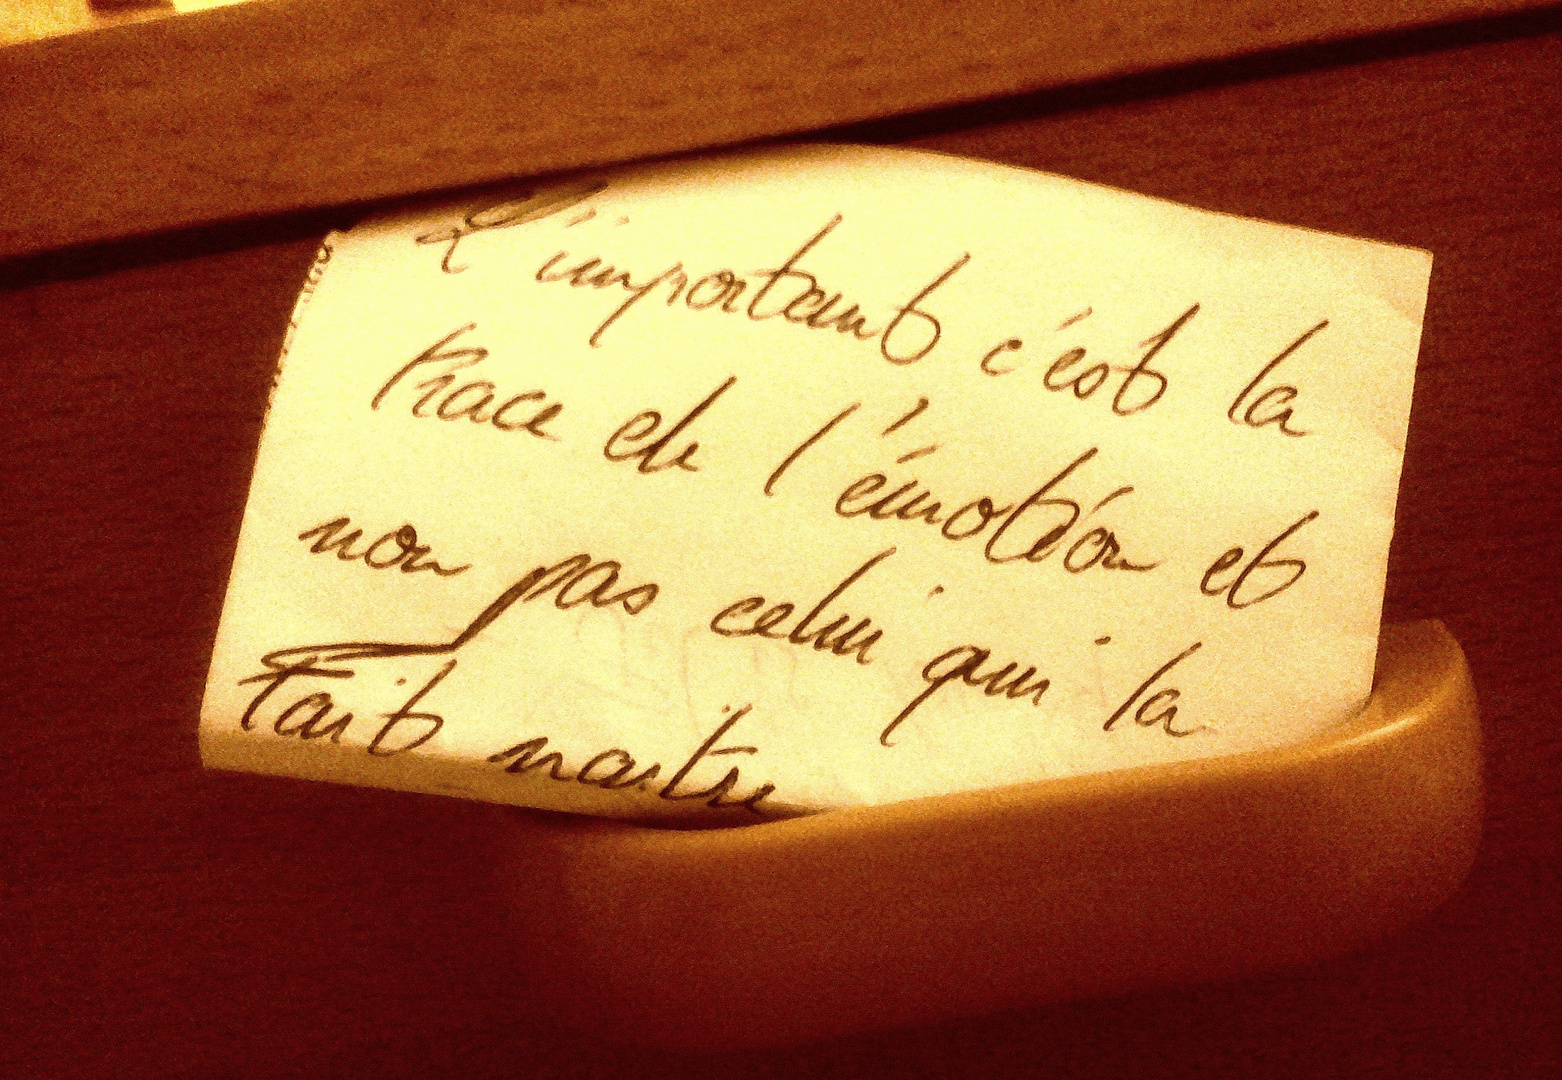 L'important c'est la
trace de l'émotion et
non pas celui qui la
Fait naitre